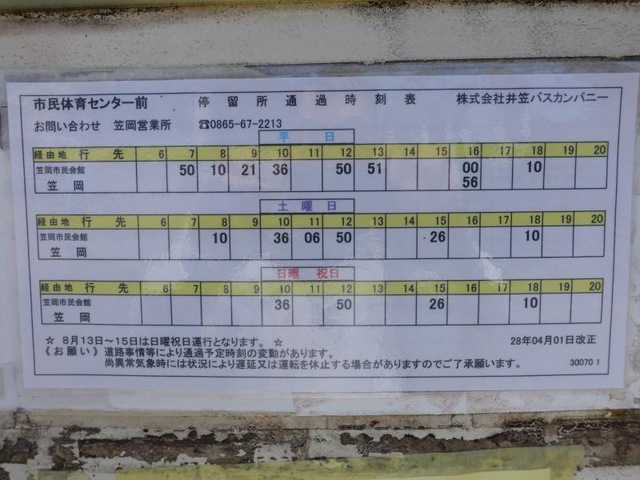 市民体育センター前 停留所通過時刻表 株式会社井笠バスカンパニー
お問い合わせ 笠岡営業所 ☎0865-67-2213
平 日
経由地 行 先 6 7 8 9 10 11 12 13 14 15 16 17 18 19 20
笠岡市民会館 50 10 21 36 50 51 00 10
笠 岡 56
土 曜 日
経由地 行 先 6 7 8 9 10 11 12 13 14 15 16 17 18 19 20
笠岡市民会館 10 36 06 50 26 10
笠 岡
日曜 祝日
経由地 行 先 6 7 8 9 10 11 12 13 14 15 16 17 18 19 20
笠岡市民会館 36 50 26 10
笠 岡
☆ 8月13日~15日は日曜祝日運行となります。 ☆ 28年04月01日改正
《お願い》道路事情等により通過予定時刻の変動があります。
尚異常気象時には状況により遅延又は運転を休止する場合がありますのでご了承願います。 30070 1